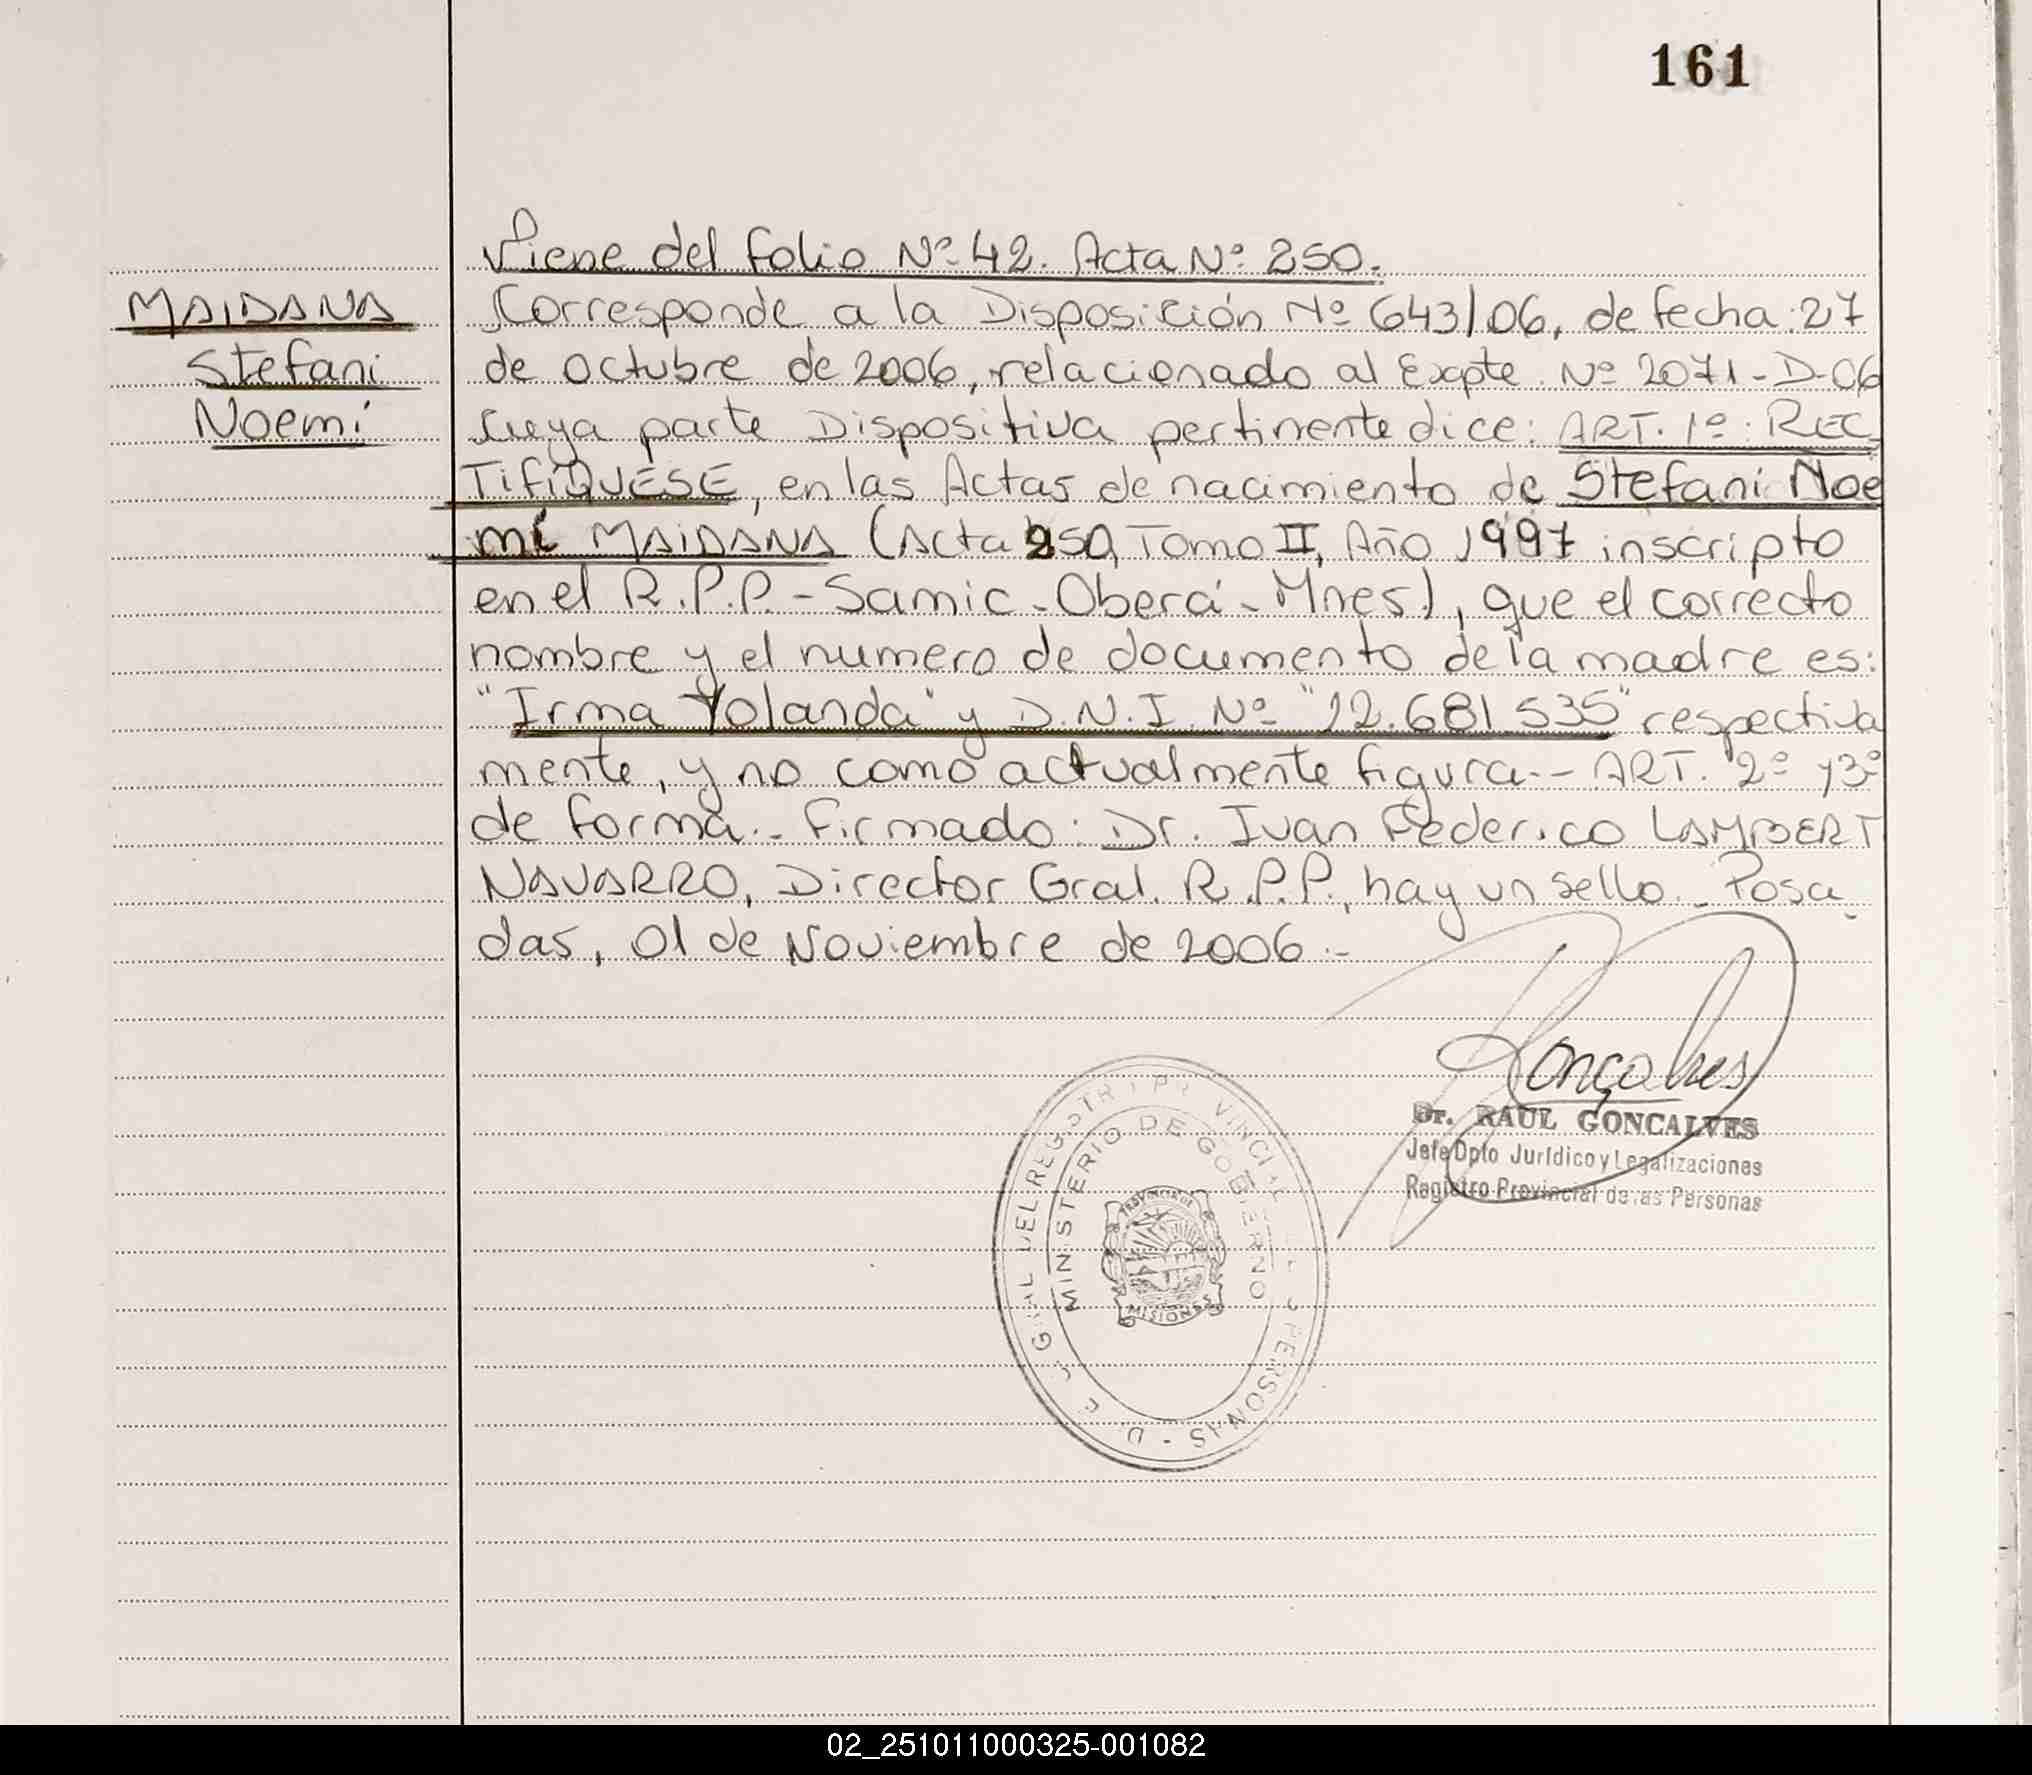 161
Viene del folio Nº 42. Acta Nº 250.
MAIDANA
Stefani
Noemí
Corresponde a la Disposición Nº 643/06, de fecha: 27
de octubre de 2006, relacionado al Expte. Nº 2071-D-06
cuya parte Dispositiva pertinente dice: ART. 1º: REC-
TIFIQUESE, en las Actas de nacimiento de Stefani Noe
mí MAIDANA (Acta 250, Tomo II, Año 1997 inscripto
en el R.P.P.-Samic-Oberá-Mnes), que el correcto
nombre y el numero de documento de la madre es:
"Irma Yolanda" y D.N.I. Nº "12.681.535" respectiva
mente, y no como actualmente figura.- ART. 2º y 3º
de forma.- Firmado: Dr. Ivan Federico LAMBERT
NAVARRO, Director Gral. R.P.P., hay un sello.- Posa-
das, 01 de Noviembre de 2006.-
Gonçalves
Dr. RAUL GONCALVES
Jefe Dpto Jurídico y Legalizaciones
Registro Provincial de las Personas
GRAL DEL REGISTR PR VINCIAL PERSONAS
MINISTERIO DE GOBIERNO
PROVINCIA DE
MISIONES
02_251011000325-001082